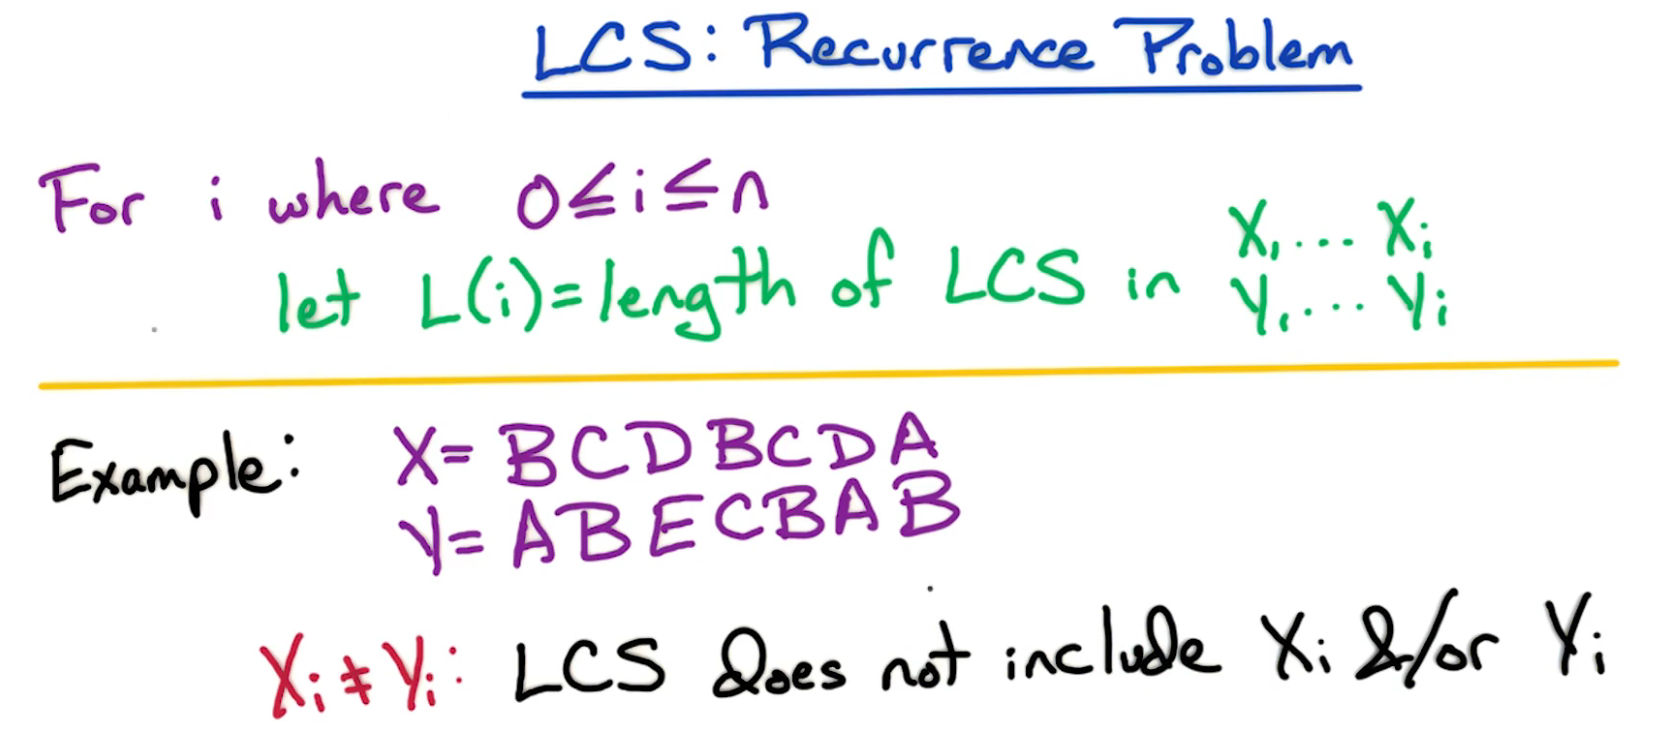 LCS: Recurrence Problem
For i where 0≤i≤n
let L(i)=length of LCS in X₁... Xᵢ
Y₁... Yᵢ
Example: X= BCDBCDA
Y= ABECBAB
Xᵢ≠Yᵢ: LCS does not include Xᵢ &/or Yᵢ